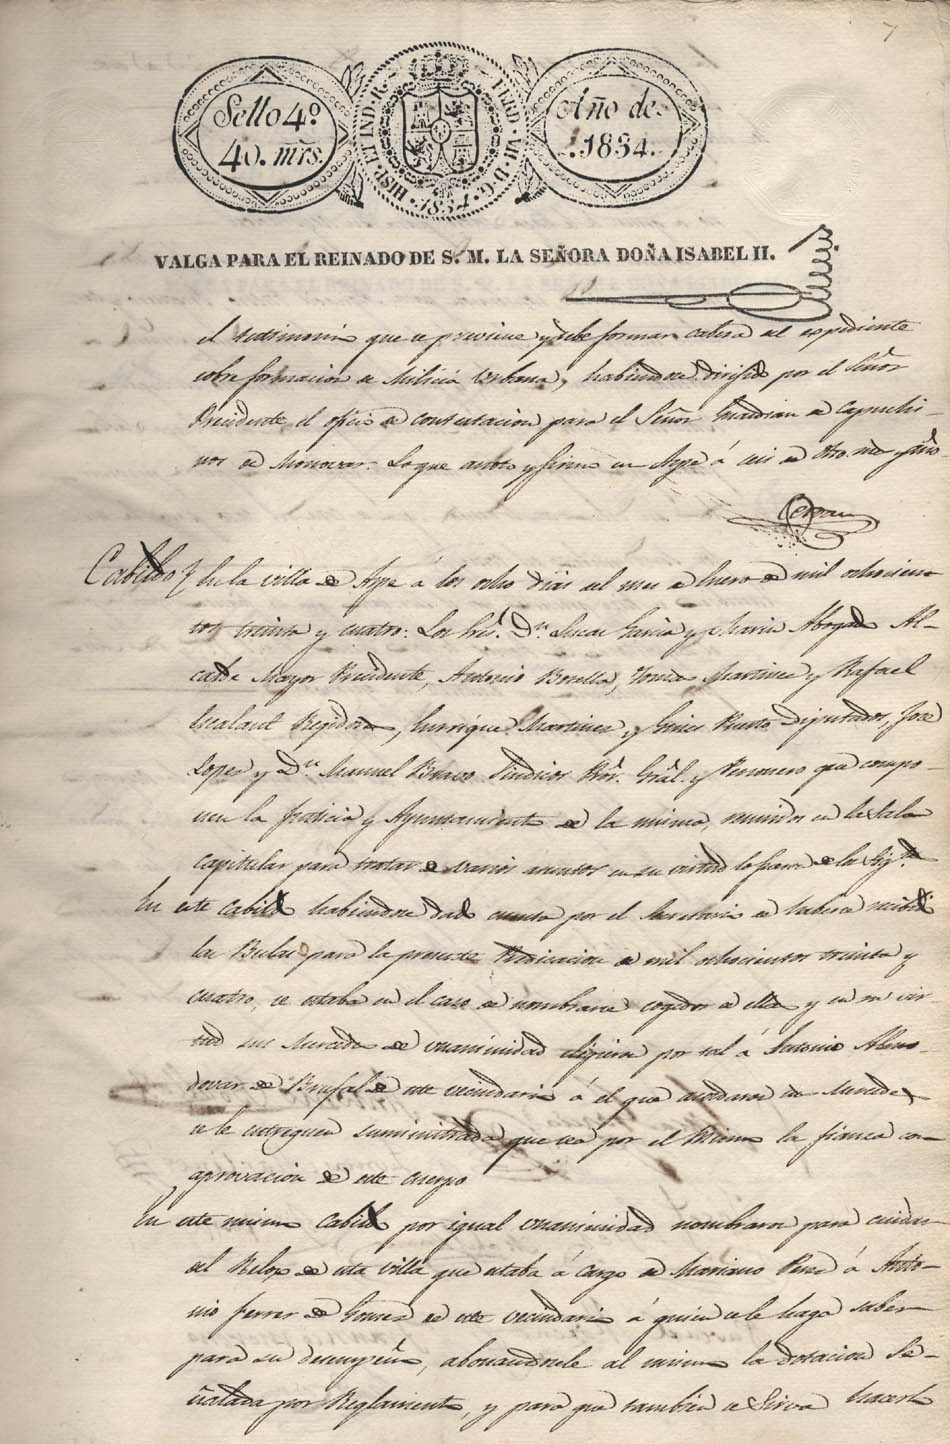 7
Sello 4º
40. mrs.
HISP. ET IND. R. FERD. VII. D. G. 1834.
Año de
1834.
VALGA PARA EL REINADO DE S. M. LA SEÑORA DOÑA ISABEL II.
el testimonio que se previene y debe formar cabeza al expediente
sobre formacion de Milicia Urbana, habiendose dirigido por el Señor
Presidente el oficio de contestacion para el Señor Guardian de Capuchi-
nos de Monovar. Lo que anoto y firmo en Aspe á seis de dho. mes y año
Cabildo En la villa de Aspe á los ocho dias del mes de Enero de mil ochocien
tos treinta y cuatro: Los Sres. Dn. Garcia y Abogado Al-
calde Mayor Presidente, Antonio Botella, Tomas Martinez y Rafael
Regidores, Enrrique Martinez, y Gines Puerto Diputados, José
Lopez y Dn. Manuel Bravo Sindicos Pror. Gral. y Personero que compo-
nen la Justicia y Ayuntamiento de la misma, reunidos en la Sala
capitular para tratar de varios asuntos en su virtud lo hacen de los sigtes.
En este Cabildo habiendose dado cuenta por el Secretario de haberse recibido
las Bulas para la presente Predicacion de mil ochocientos treinta y
cuatro, se estaba en el caso de nombrarse cogedor de ellas y en su vir-
tud sus Mercedes de unanimidad eligieron por tal á Antonio Almo-
dovar de Brufal de este vecindario á el que acordaron sus Mercedes,
se le entreguen suministrada que sea por el Mismo la fianza con
aprovacion de este cuerpo
En este mismo Cabildo por igual unanimidad nombraron para cuidar
del Relox de esta villa que estaba á cargo de Mariano Perez á Anto-
nio Ferrer de Gomez de este vecindario á quien se le haga saber
para su desempeño, abonandosele al mismo la dotacion Se-
ñalada por Reglamento, y para que tambien se sirva hacerle